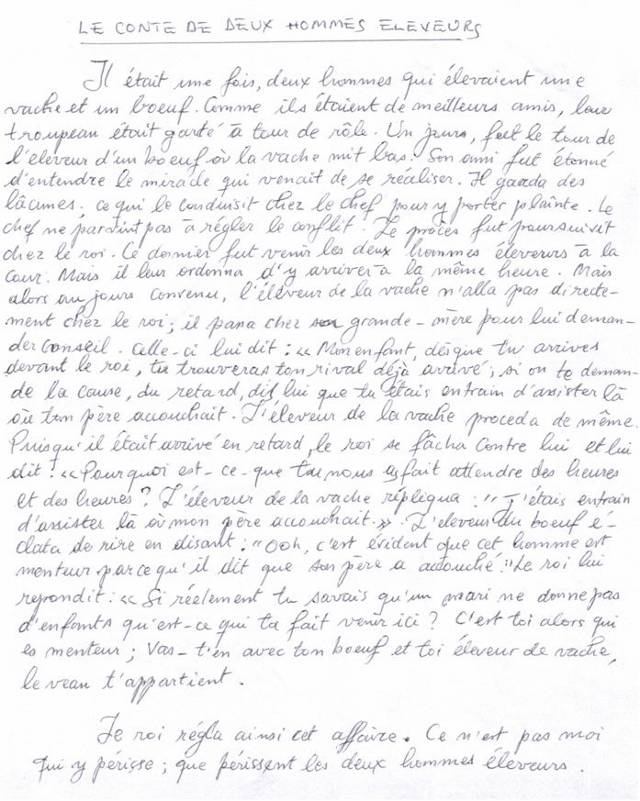 LE CONTE DE DEUX HOMMES ELEVEURS
Il était une fois, deux hommes qui élevaient une
vache et un boeuf. Comme ils étaient de meilleurs amis, leur
troupeau était gardé à tour de rôle. Un jours, fut le tour de
l'éleveur d'un boeuf où la vache mit bas. Son ami fut étonné
d'entendre le miracle qui venait de se réaliser. Il garda des
lacunes. ce qui le conduisit chez le chef pour y porter plainte. Le
chef ne parvint pas à régler le conflit. Le procès fut poursuivit
chez le roi. Ce dernier fut venir les deux hommes éleveurs à la
cour. Mais il leur ordonna d'y arriver à la même heure. Mais
alors au jours convenu, l'éleveur de la vache n'alla pas directe-
ment chez le roi; il passa chez sa grande-mère pour lui deman-
der conseil. Celle-ci lui dit: « Mon enfant, dès que tu arrives
devant le roi, tu trouveras ton rival déjà arrivé; si on te deman-
de la cause, du retard, dis lui que tu étais entrain d'assister là
où ton père accouchait. L'éleveur de la vache proceda de même.
Puisqu'il était arrivé en retard, le roi se fâcha contre lui et lui
dit: « Pourquoi est-ce-que tu nous fait attendre des heures
et des heures? L'éleveur de la vache répliqua: " J'étais entrain
d'assister là où mon père accouchait.» L'eleveur du boeuf é-
clata de rire en disant: "Ooh, c'est évident que cet homme est
menteur parce qu'il dit que son père a accouché." Le roi lui
repondit: « Si réelement tu savais qu'un mari ne donne pas
d'enfants qu'est-ce qui ta fait venir ici? C'est toi alors qui
es menteur; Vas-t'en avec ton boeuf et toi éleveur de vache,
le veau t'appartient.
Le roi régla ainsi cet affaire. Ce n'est pas moi
qui y périsse; que périssent les deux hommes éleveurs.